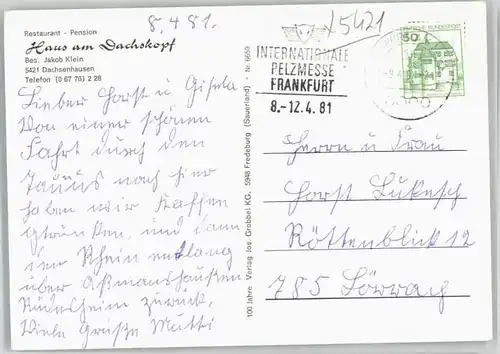 Restaurant - Pension
Haus am Dachskopf
Bes. Jakob Klein
5421 Dachsenhausen
Telefon (0 67 76) 2 28
8.4.81.
Lieber Horst u Gisela
Von einer schönen
Fahrt durch den
Taunus nach hier
haben wir Kaffee
getrunken, und dann
den Rhein entlang
über Aßmannshausen
Rüdesheim zurück.
Viele Grüße Mutti
100 Jahre Verlag Jos. Grobbel KG, 5948 Fredeburg (Sauerland) - Nr. 6659
5421
INTERNATIONALE
PELZMESSE
FRANKFURT
8.-12.4.81
50
DEUTSCHE BUNDESPOST
Herrn u Frau
Horst Lukesch
Röttenblick 12
785 Lörrach